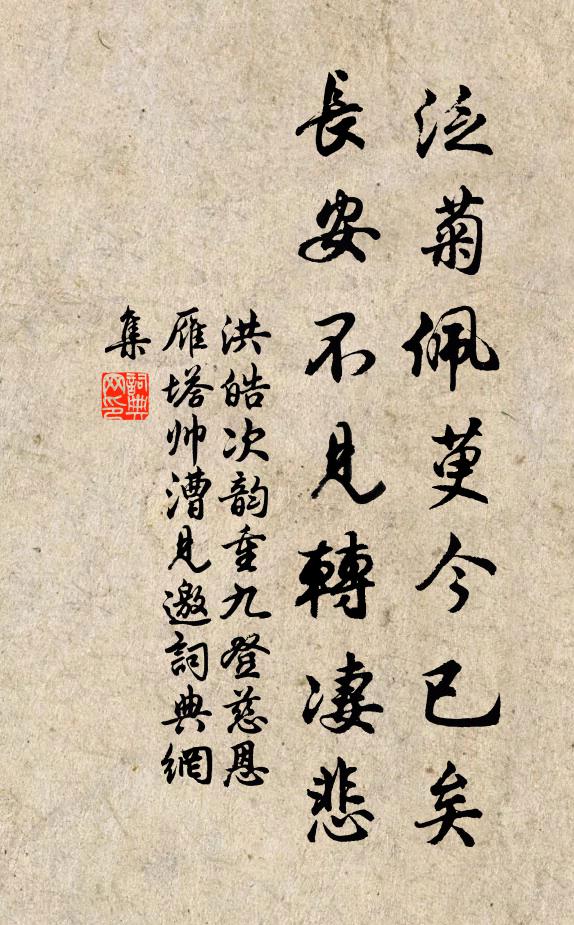 泛菊佩萸今已矣
長安不見轉凄悲
洪皓次韵重九登慈恩
雁塔帅漕見邀詞典網
集
詞典
网印